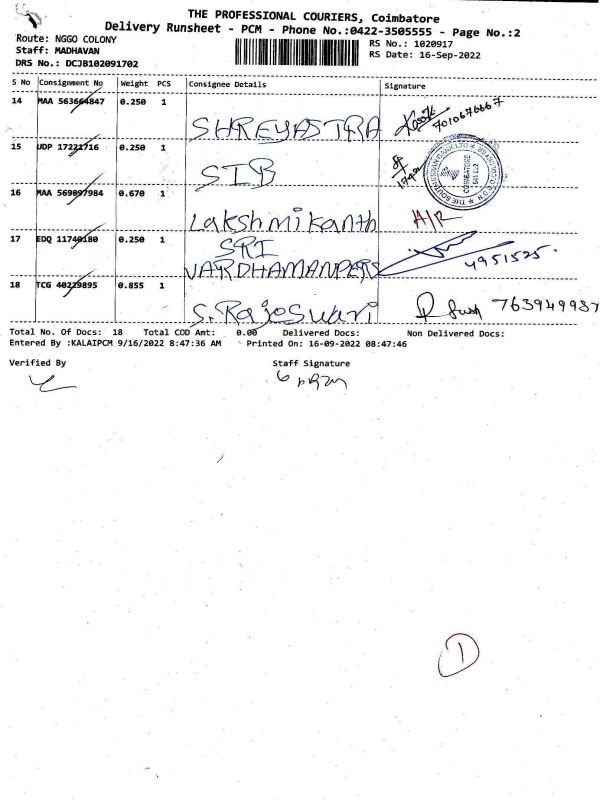 THE PROFESSIONAL COURIERS, Coimbatore
Delivery Runsheet - PCM - Phone No.:0422-3505555 - Page No.:2
Route: NGGO COLONY
RS No.: 1020917
Staff: MADHAVAN
RS Date: 16-Sep-2022
DRS No.: DCJB102091702
S No Consignment No Weight PCS Consignee Details Signature
14 MAA 563664847 0.250 1 SHREYASTRA 7010676667
15 UDP 17221716 0.250 1 SIB
16 MAA 569097984 0.670 1 Lakshmikanth A/R
17 EDQ 11740180 0.250 1 SRI VARDHAMANPERS 4951525
18 TCG 40229895 0.855 1 S. Rajoswari 763949987
Total No. Of Docs: 18 Total COD Amt: 0.00 Delivered Docs: Non Delivered Docs:
Entered By :KALAIPCM 9/16/2022 8:47:36 AM Printed On: 16-09-2022 08:47:46
Verified By Staff Signature
1